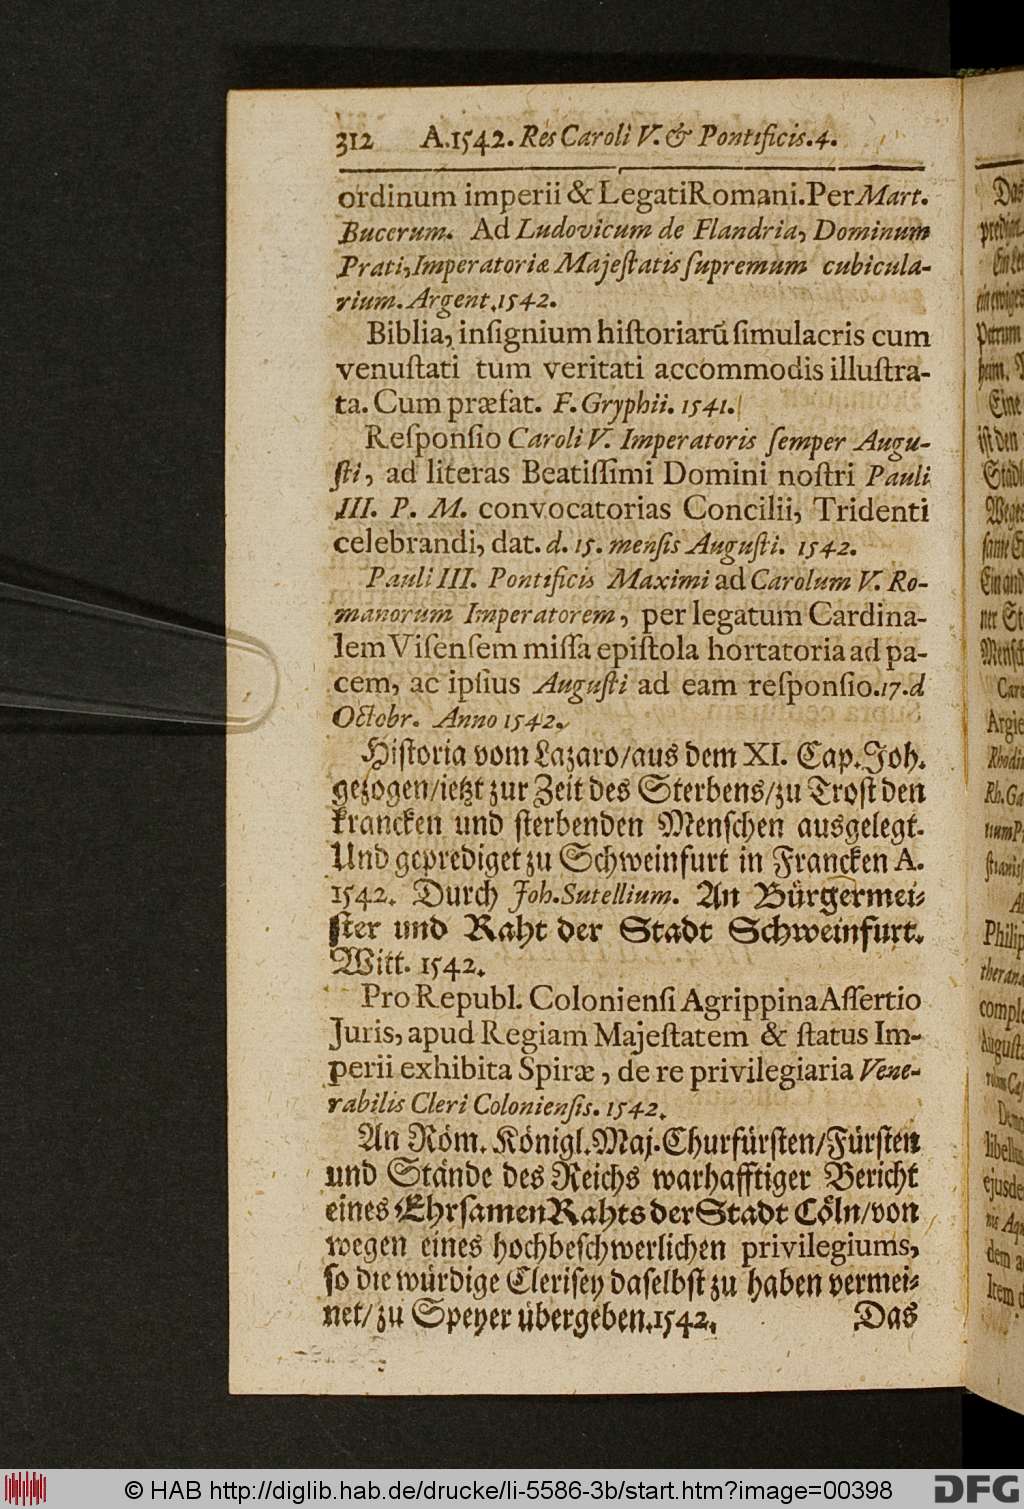 312 A.1542. Res Caroli V. & Pontificis. 4.
ordinum imperii & Legati Romani. Per Mart.
Bucerum. Ad Ludovicum de Flandria, Dominum
Prati, Imperatoriæ Majeſtatis ſupremum cubicula-
rium. Argent. 1542.
Biblia, inſignium hiſtoriarũ ſimulacris cum
venuſtati tum veritati accommodis illuſtra-
ta. Cum præfat. F. Gryphii. 1541.
Reſponſio Caroli V. Imperatoris ſemper Augu-
ſti, ad literas Beatiſſimi Domini noſtri Pauli
III. P. M. convocatorias Concilii, Tridenti
celebrandi, dat. d. 15. menſis Auguſti. 1542.
Pauli III. Pontificis Maximi ad Carolum V. Ro-
manorum Imperatorem, per legatum Cardina-
lem Viſenſem miſſa epiſtola hortatoria ad pa-
cem, ac ipſius Auguſti ad eam reſponſio. 17. d
Octobr. Anno 1542.
Hiſtoria vom Lazaro/aus dem XI. Cap. Joh.
gezogen/ietzt zur Zeit des Sterbens/zu Troſt den
krancken und ſterbenden Menſchen ausgelegt.
Und geprediget zu Schweinfurt in Francken A.
1542. Durch Joh. Sutellium. An Bürgermei-
ſter und Raht der Stadt Schweinfurt.
Witt. 1542.
Pro Republ. Colonienſi Agrippina Aſſertio
Juris, apud Regiam Majeſtatem & ſtatus Im-
perii exhibita Spiræ, de re privilegiaria Vene-
rabilis Cleri Colonienſis. 1542.
An Röm. Königl. Maj. Churfürſten/Fürſten
und Stände des Reichs warhafftiger Bericht
eines Ehrſamen Rahts der Stadt Cöln/von
wegen eines hochbeſchwerlichen privilegiums,
ſo die würdige Cleriſey daſelbſt zu haben vermei-
net/ zu Speyer übergeben. 1542. Das
© HAB http://diglib.hab.de/drucke/li-5586-3b/start.htm?image=00398
DFG